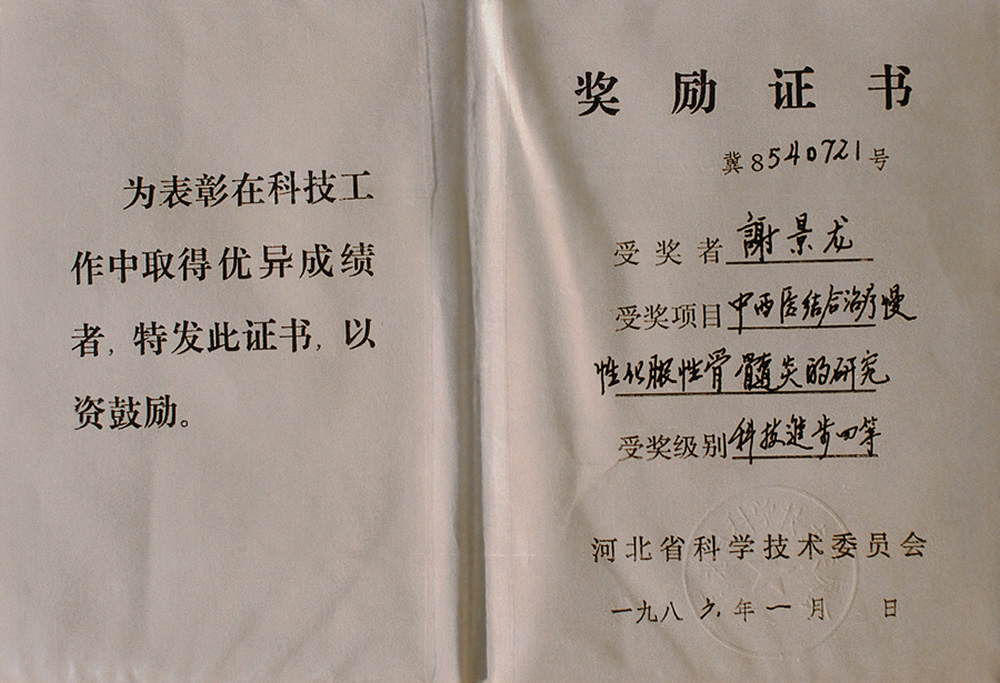 为表彰在科技工
作中取得优异成绩
者，特发此证书，以
资鼓励。
奖励证书
冀8540721号
受奖者 謝景龙
受奖项目 中西医结合治疗慢
性化脓性骨髓炎的研究
受奖级别 科技進步四等
河北省科学技术委员会
一九八六年一月 日